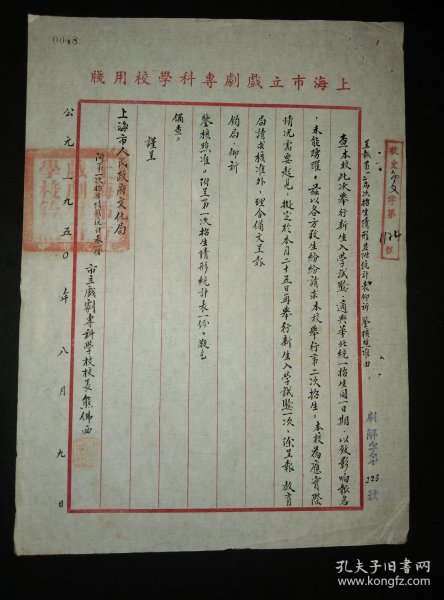 0048
上海市立戲劇專科學校用牋
收文 字第 號
劇解字第223號
呈報第一次招生情形並附統計表仰祈 鑒核照准由
查本校此次舉行新生入學試驗,適與華北統一招生同一日期,以致影响報名
未能踴躍。茲以各方投生紛紛請求本校舉行第二次招生。本校為應實際
情况需要起見,擬定於本月二十五日再舉行新生入學試驗一次,除呈報 教育
局請求核准外,理合備文呈報
鈞局,仰祈
鑒核照准。附呈第一次招生情形統計表一份,敬乞
備查,
謹呈
上海市人民政府文化局
附第一次招生情形統計表一份
市立戲劇專科學校校長熊佛西
公元一九五〇年八月九日
孔夫子旧书网
www.kongfz.com